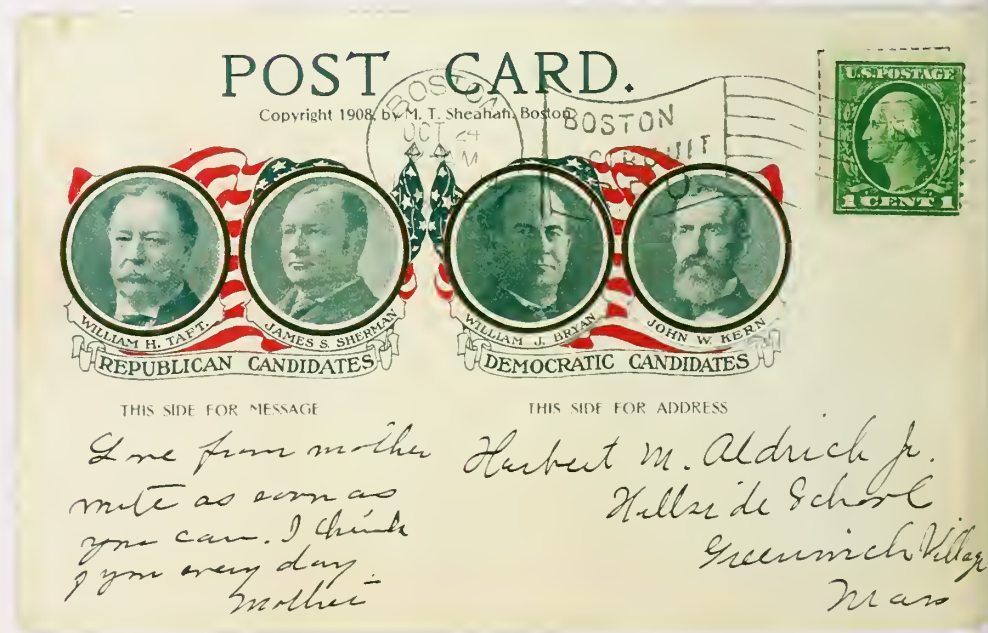 POST CARD.
Copyright 1908, by M. T. Sheahan, Boston
BOSTON
OCT 24
M
BOSTON
U.S.POSTAGE
1 CENT 1
WILLIAM H. TAFT.
JAMES S. SHERMAN
REPUBLICAN CANDIDATES
WILLIAM J. BRYAN
JOHN W. KERN
DEMOCRATIC CANDIDATES
THIS SIDE FOR MESSAGE
Love from mother
write as soon as
you can. I think
of you every day.
Mother
THIS SIDE FOR ADDRESS
Herbert M. Aldrich Jr.
Hillside School
Greenwich Village
Mass